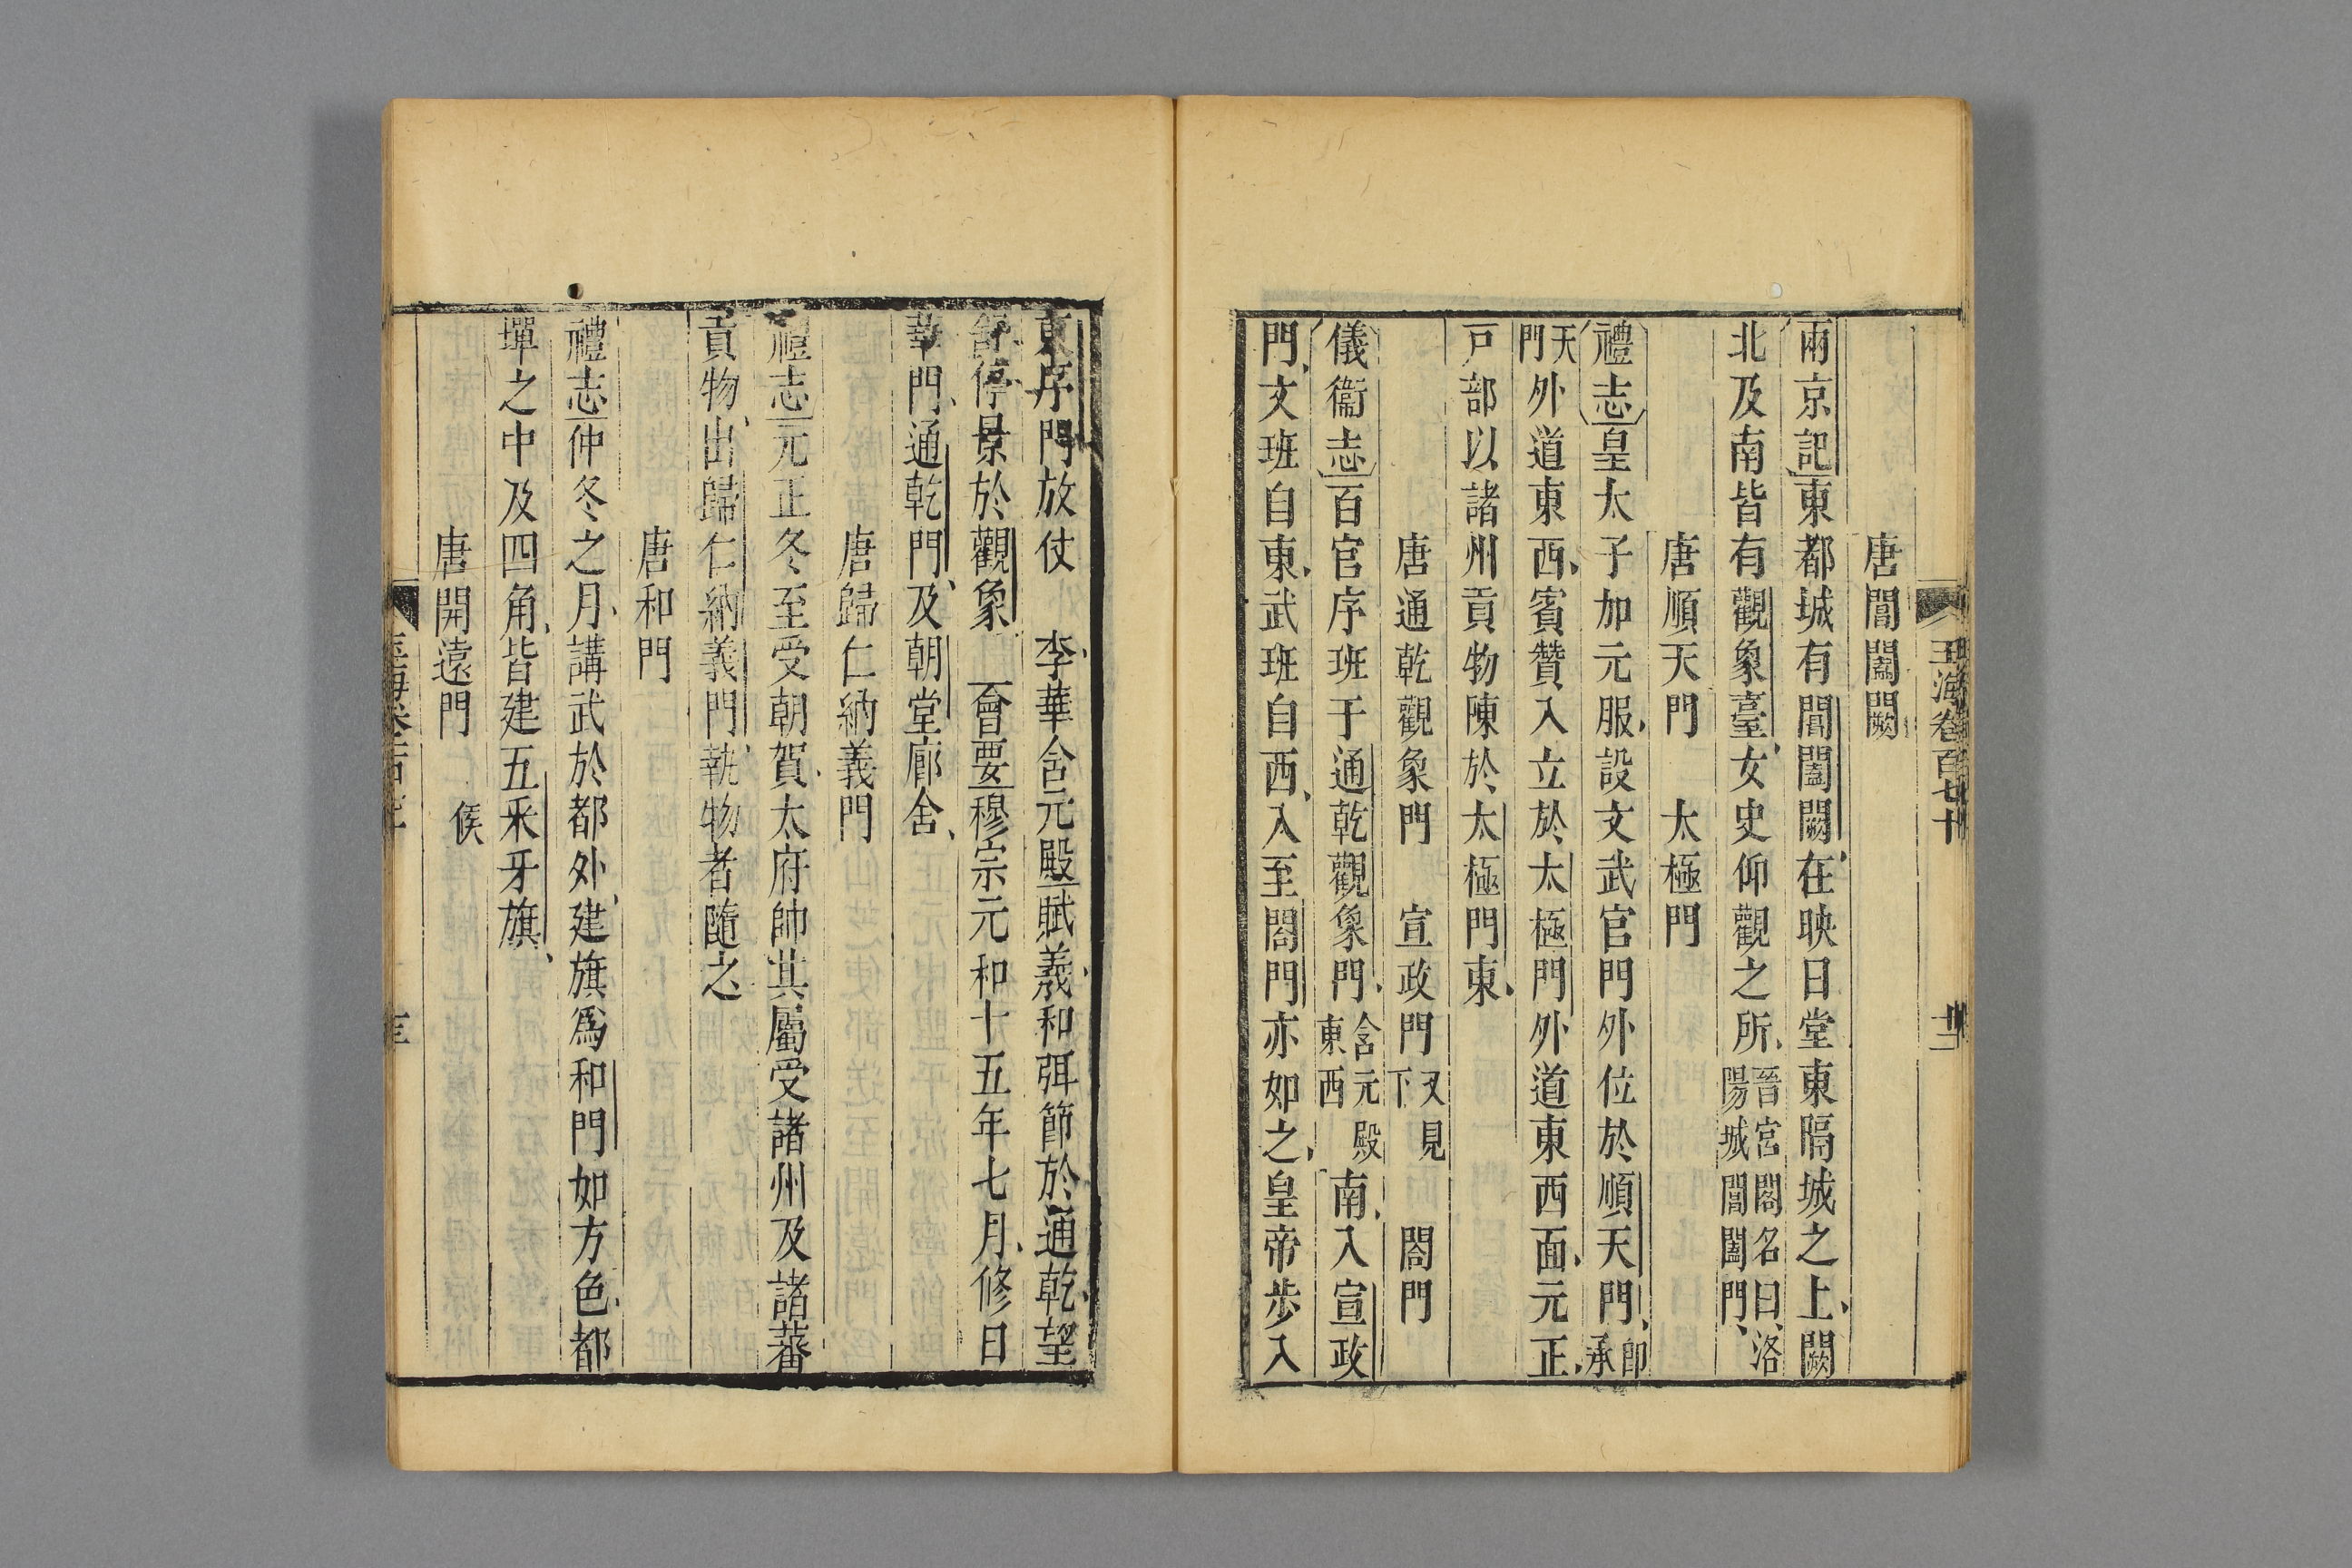 玉海卷百七十
唐閶闔闕
兩京記東都城有閶闔闕在映日堂東隔城之上闕
北及南皆有觀象臺女史仰觀之所晉宮閣名曰洛陽城閶闔門
唐順天門　太極門
禮志皇太子加元服設文武官門外位於順天門即承
天門外道東西賓贊入立於太極門外道東西面元正
戸部以諸州貢物陳於太極門東
唐通乾觀象門　宣政門又見下　閤門
儀衞志百官序班于通乾觀象門含元殿東西南入宣政
門文班自東武班自西入至閤門亦如之皇帝步入
東序門放仗　李華含元殿賦羲和弭節於通乾望
舒停景於觀象　會要穆宗元和十五年七月修日
華門通乾門及朝堂廊舍
唐歸仁納義門
禮志元正冬至受朝賀太府帥其屬受諸州及諸蕃
貢物出歸仁納義門執物者隨之
唐和門
禮志仲冬之月講武於都外建旗爲和門如方色都
墠之中及四角皆建五釆牙旗
唐開遠門　候